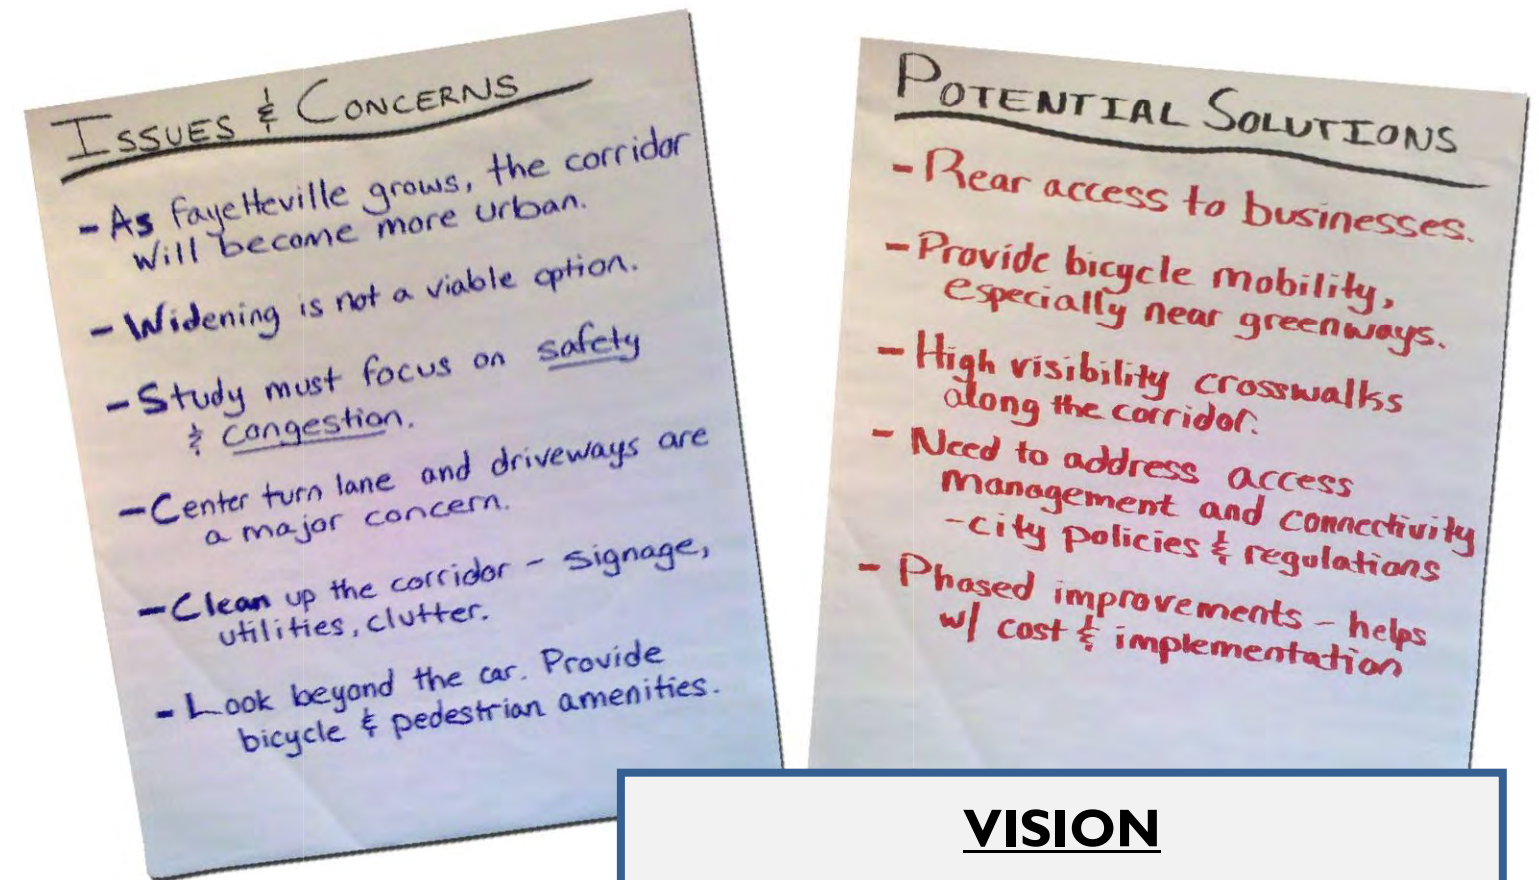 ISSUES & CONCERNS
- As Fayetteville grows, the corridor
will become more urban.
- Widening is not a viable option.
- Study must focus on safety
& congestion.
- Center turn lane and driveways are
a major concern.
- Clean up the corridor - signage,
utilities, clutter.
- Look beyond the car. Provide
bicycle & pedestrian amenities.
POTENTIAL SOLUTIONS
- Rear access to businesses.
- Provide bicycle mobility,
especially near greenways.
- High visibility crosswalks
along the corridor.
- Need to address access
management and connectivity
- city policies & regulations
- Phased improvements - helps
w/ cost & implementation
VISION